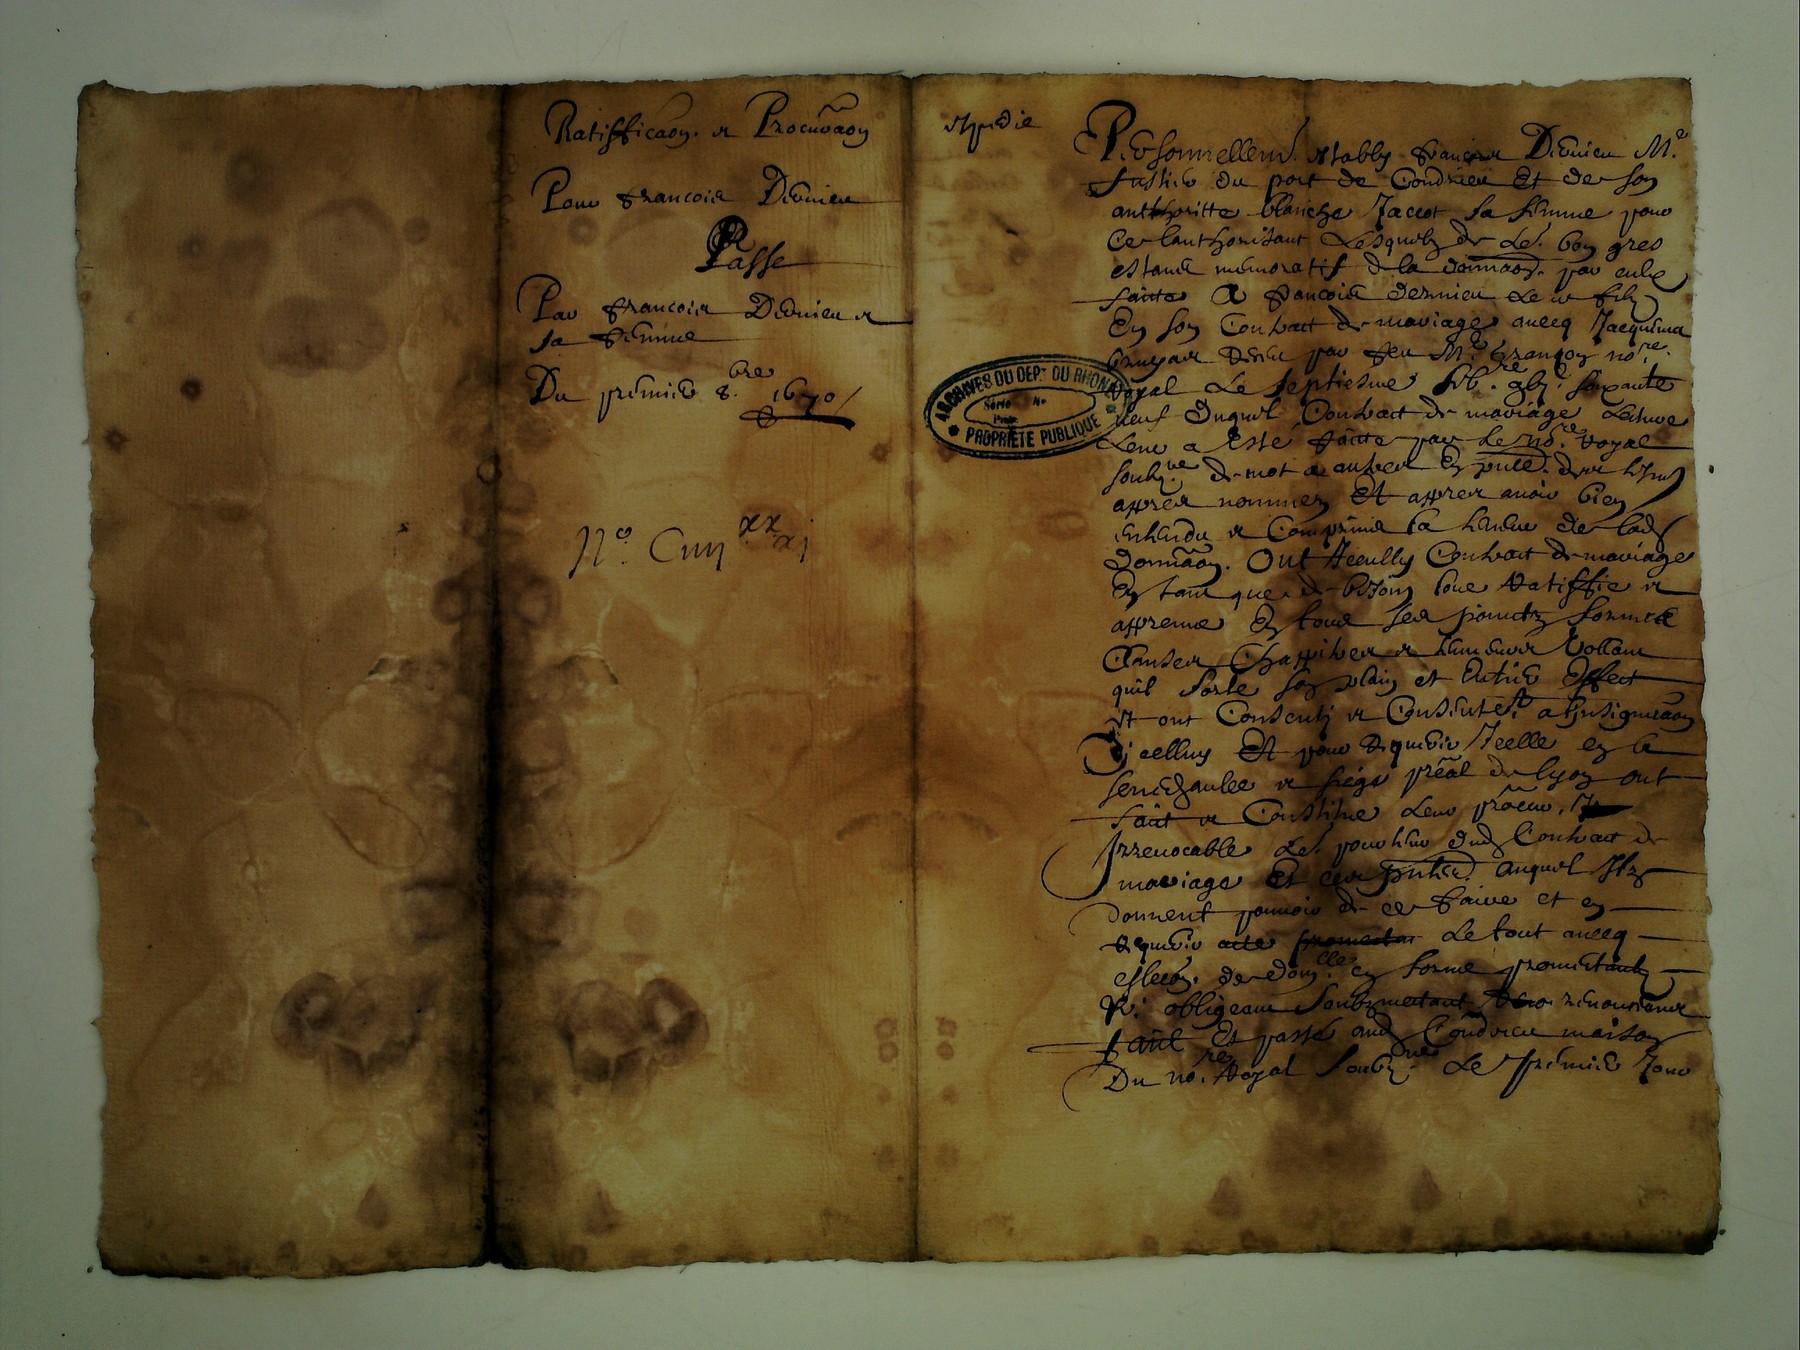 Ratifficaõn. et Procurãon
Pour francois Dernieu
Passe
Par francois Dernieu et
sa femme
Du premier 8.bre 1670
No. Ciiij xx xj
expedie
Personnellemt. estably francois Dernieu Me
fustier du port de Condrieu Et de son
authoritte blanche Jaccot sa femme pour
ce lauthorisant Lesquelz de Le. bon gres
estans memoratif de la donnaõn. par eulx
faicte A francois dernieu Leur filz
En son Contract de mariage avecq Jacquema
receu par feu Me. Grangon nore.
royal Le septiesme soixante
neuf duquel Contract de mariage Lecture
Leur a Esté faicte par Le nore. royal
soubz.ne de mot a aultres En pnce. des tesmoings
appres nommez Et appres avoir bien
entendu et Comprins la teneur de lad.
donnãon. Ont Icelluy Contract de mariage
En tant que de besoin loue Ratiffie et
appreuve En tous ses pointz forme
Clauses Chappitres et teneurs Vollans
quil sorte son plain et Entier Effect
Et ont Consenti et Consentet. a linsignuãon
Dicelluy Et pour Requerir Icelle en la
senechaulee et siege preãl de lyon ont
faict et Constitue Leur procur.
Irrevocable Le. porteur dud. Contract de
mariage Et ces pntes. auquel Ilz
donnent pouvoir de ce faire et en
Requerir acte promectas Le tout avecq
eslecõn. de domi.lle en forme promectantz
R. obligeans soubzmectant renonceans
faict Et passé aud. Condrieu maison
Du nore. Royal soubz.ne Le premier Jour
ARCHIVES DU DEPT. DU RHONE
Série No
PROPRIÉTÉ PUBLIQUE